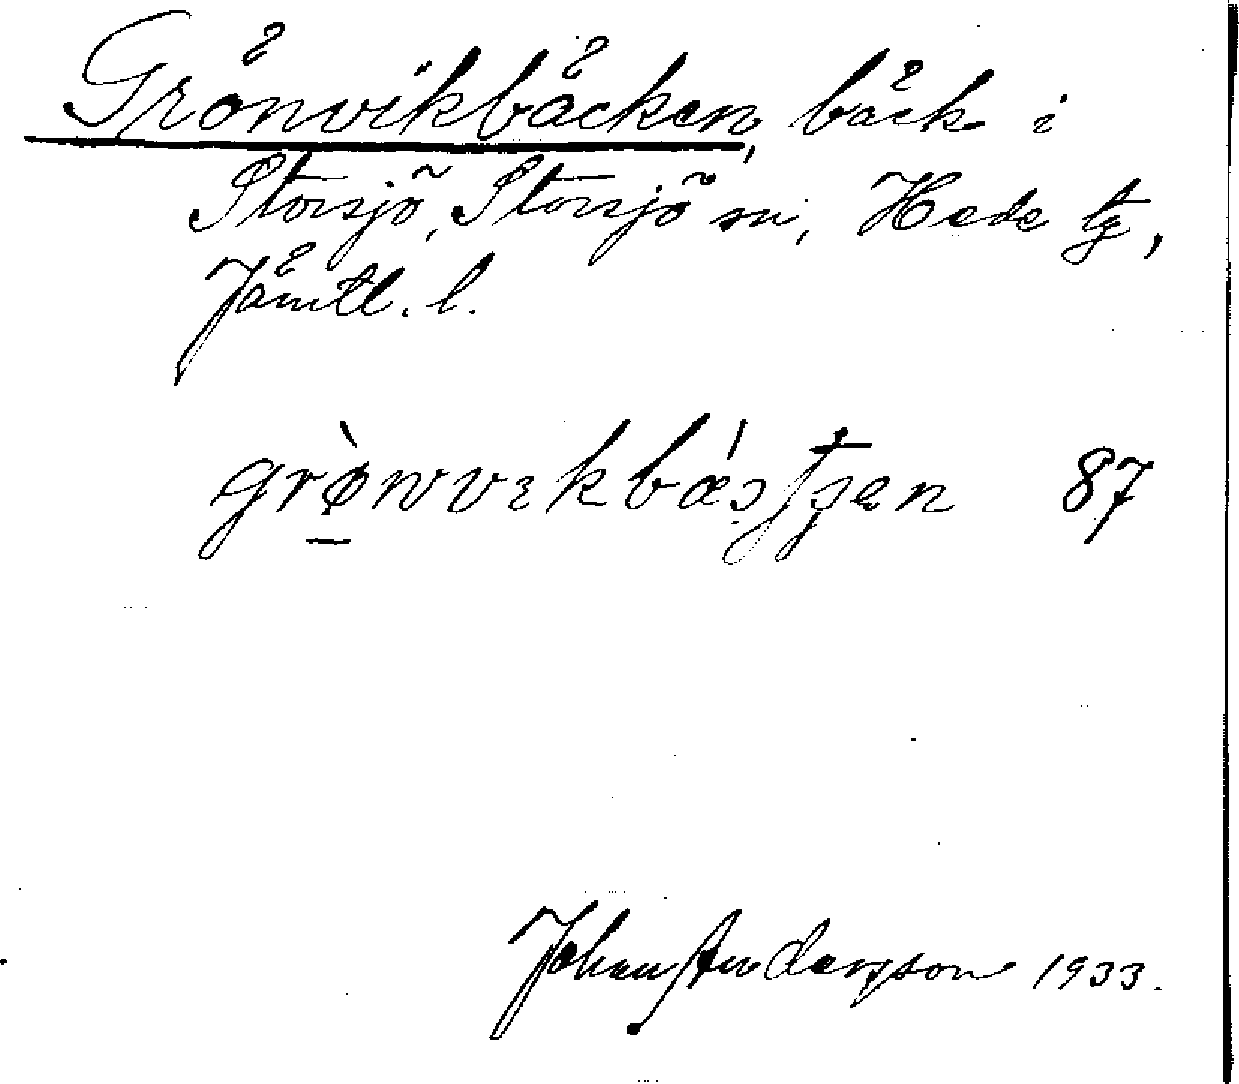 Grönvikbäcken, bäck i
Storsjö, Storsjö sn, Hede tg,
Jämtl. l.
87
Johan Andersson 1933.